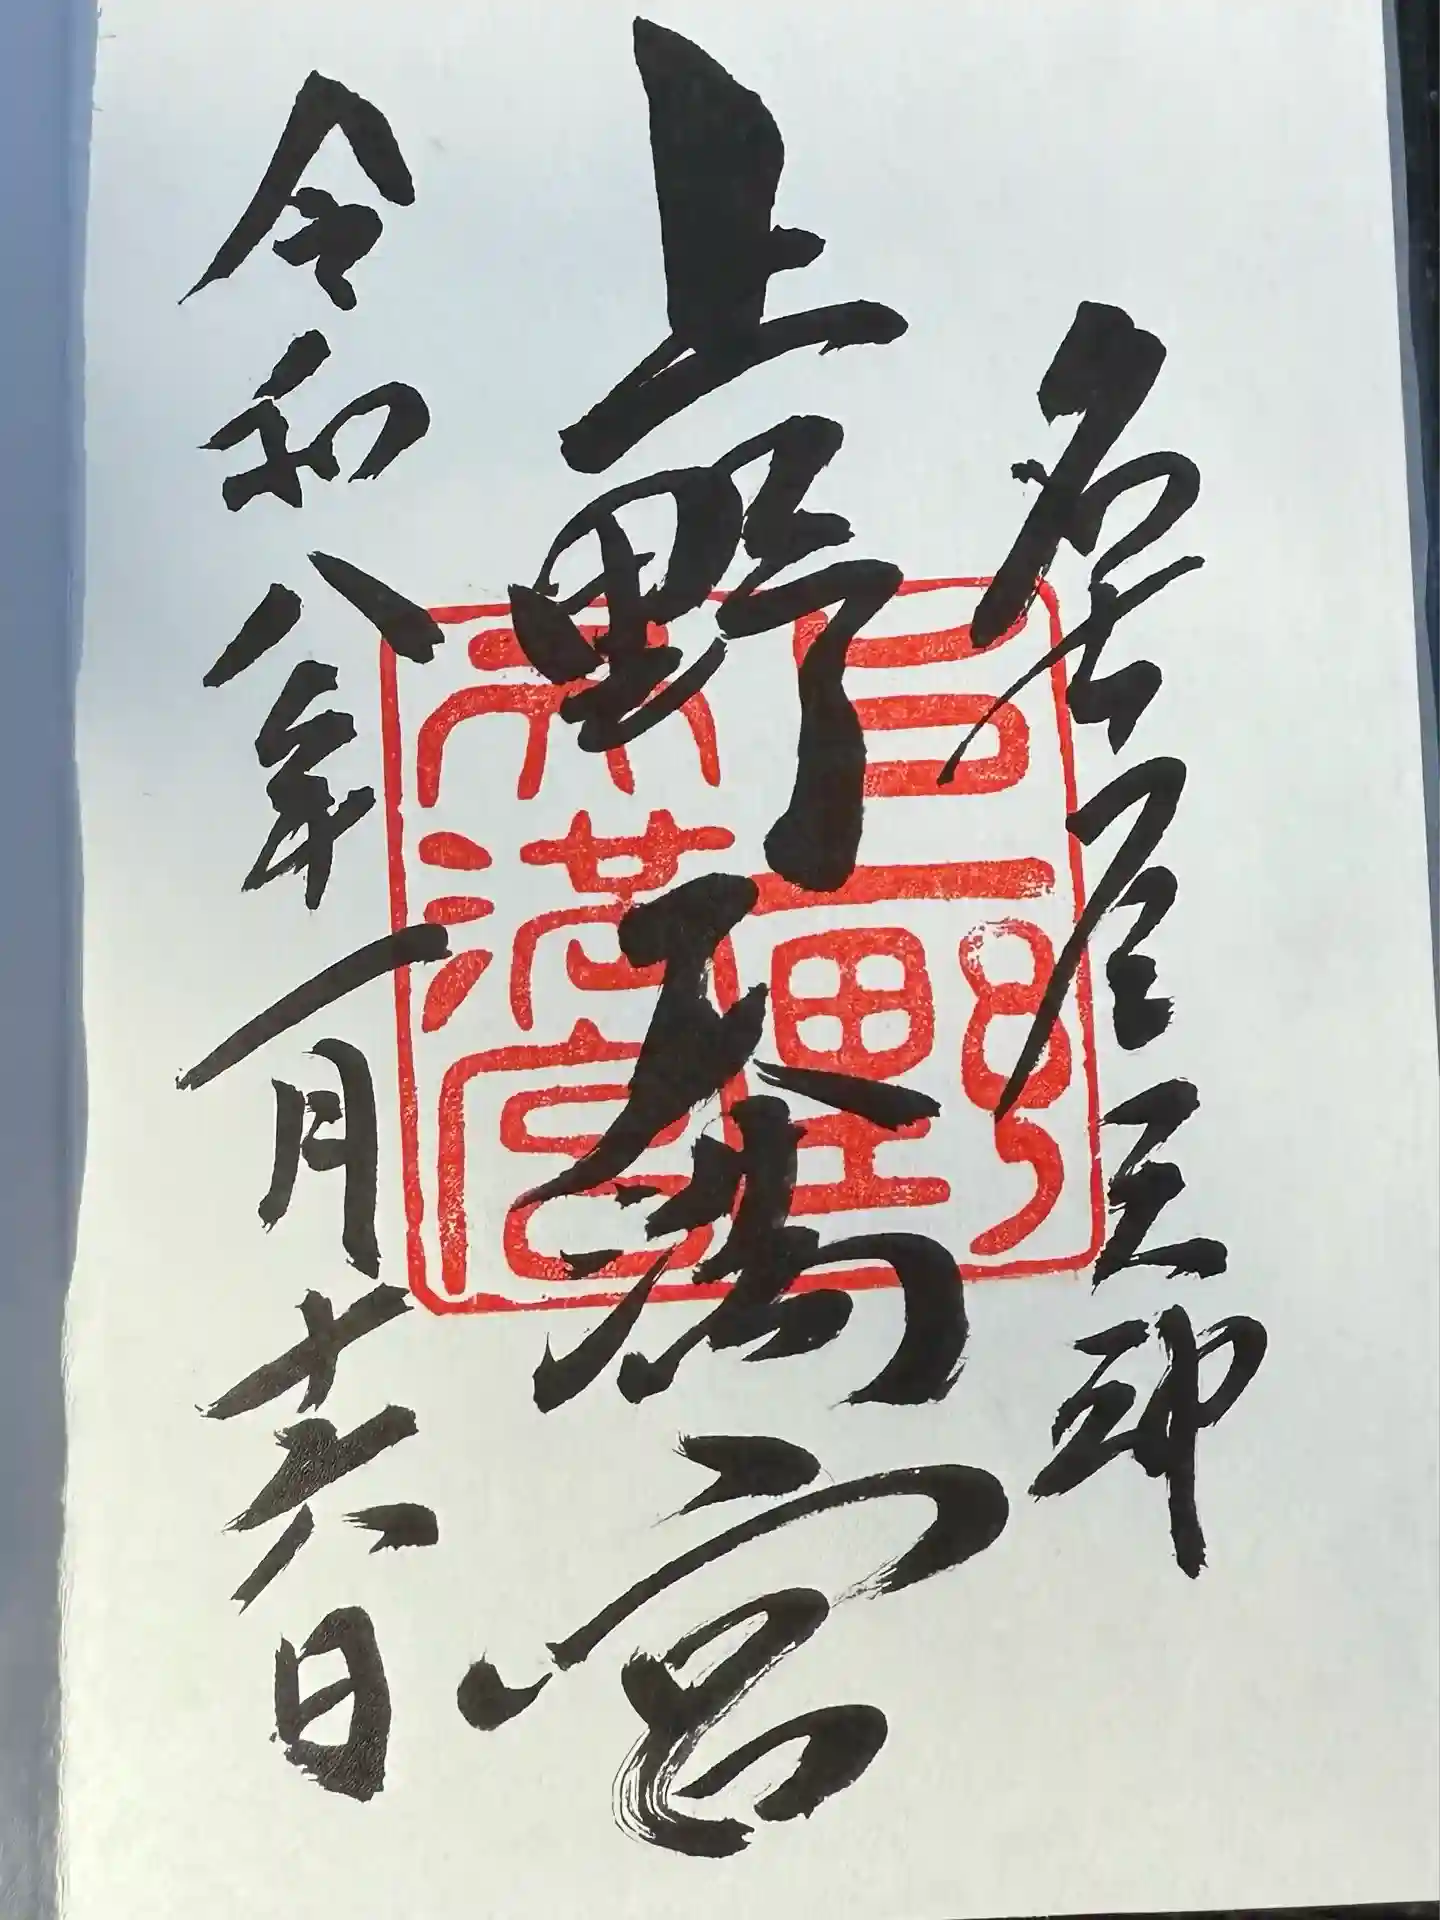 名古屋天神
上野天満宮
令和八年一月十六日
上野
天満宮